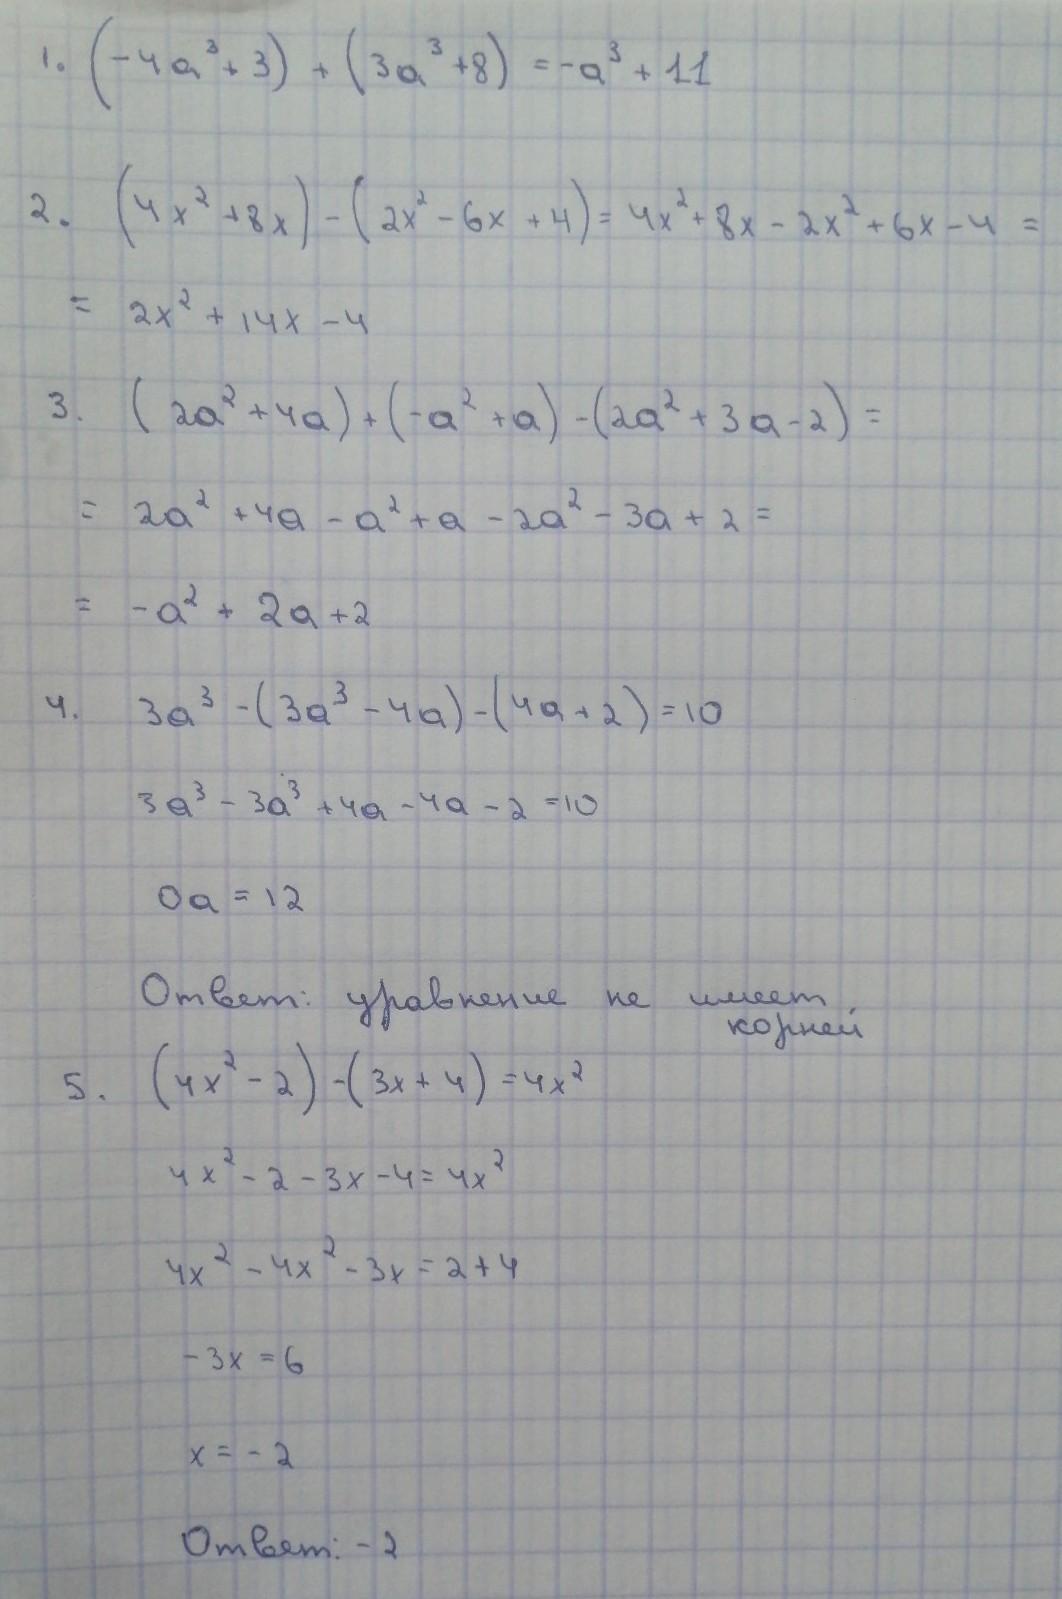 1. (-4a³+3) + (3a³+8) = -a³ + 11
2. (4x²+8x) - (2x² - 6x + 4) = 4x² + 8x - 2x² + 6x - 4 =
= 2x² + 14x - 4
3. (2a² + 4a) + (-a² + a) - (2a² + 3a - 2) =
= 2a² + 4a - a² + a - 2a² - 3a + 2 =
= -a² + 2a + 2
4. 3a³ - (3a³ - 4a) - (4a + 2) = 10
3a³ - 3a³ + 4a - 4a - 2 = 10
0a = 12
Ответ: уравнение не имеет
корней
5. (4x² - 2) - (3x + 4) = 4x²
4x² - 2 - 3x - 4 = 4x²
4x² - 4x² - 3x = 2 + 4
-3x = 6
x = -2
Ответ: -2